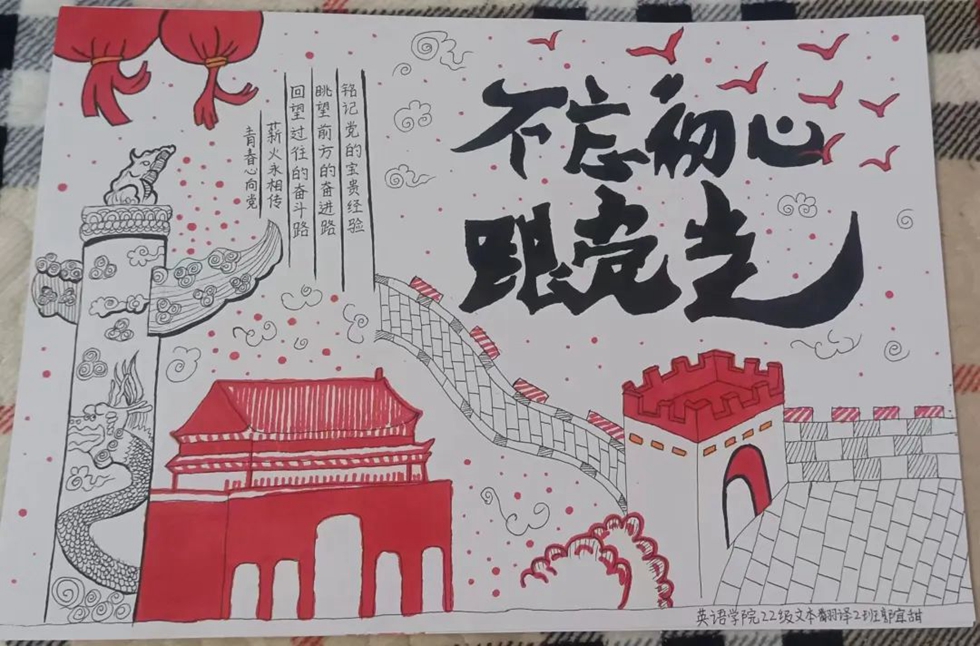 不忘初心
跟党走
铭记党的宝贵经验
眺望前方的奋进路
回望过往的奋斗路
薪火永相传
青春心向党
英语学院22级文本翻译2班郭宜甜